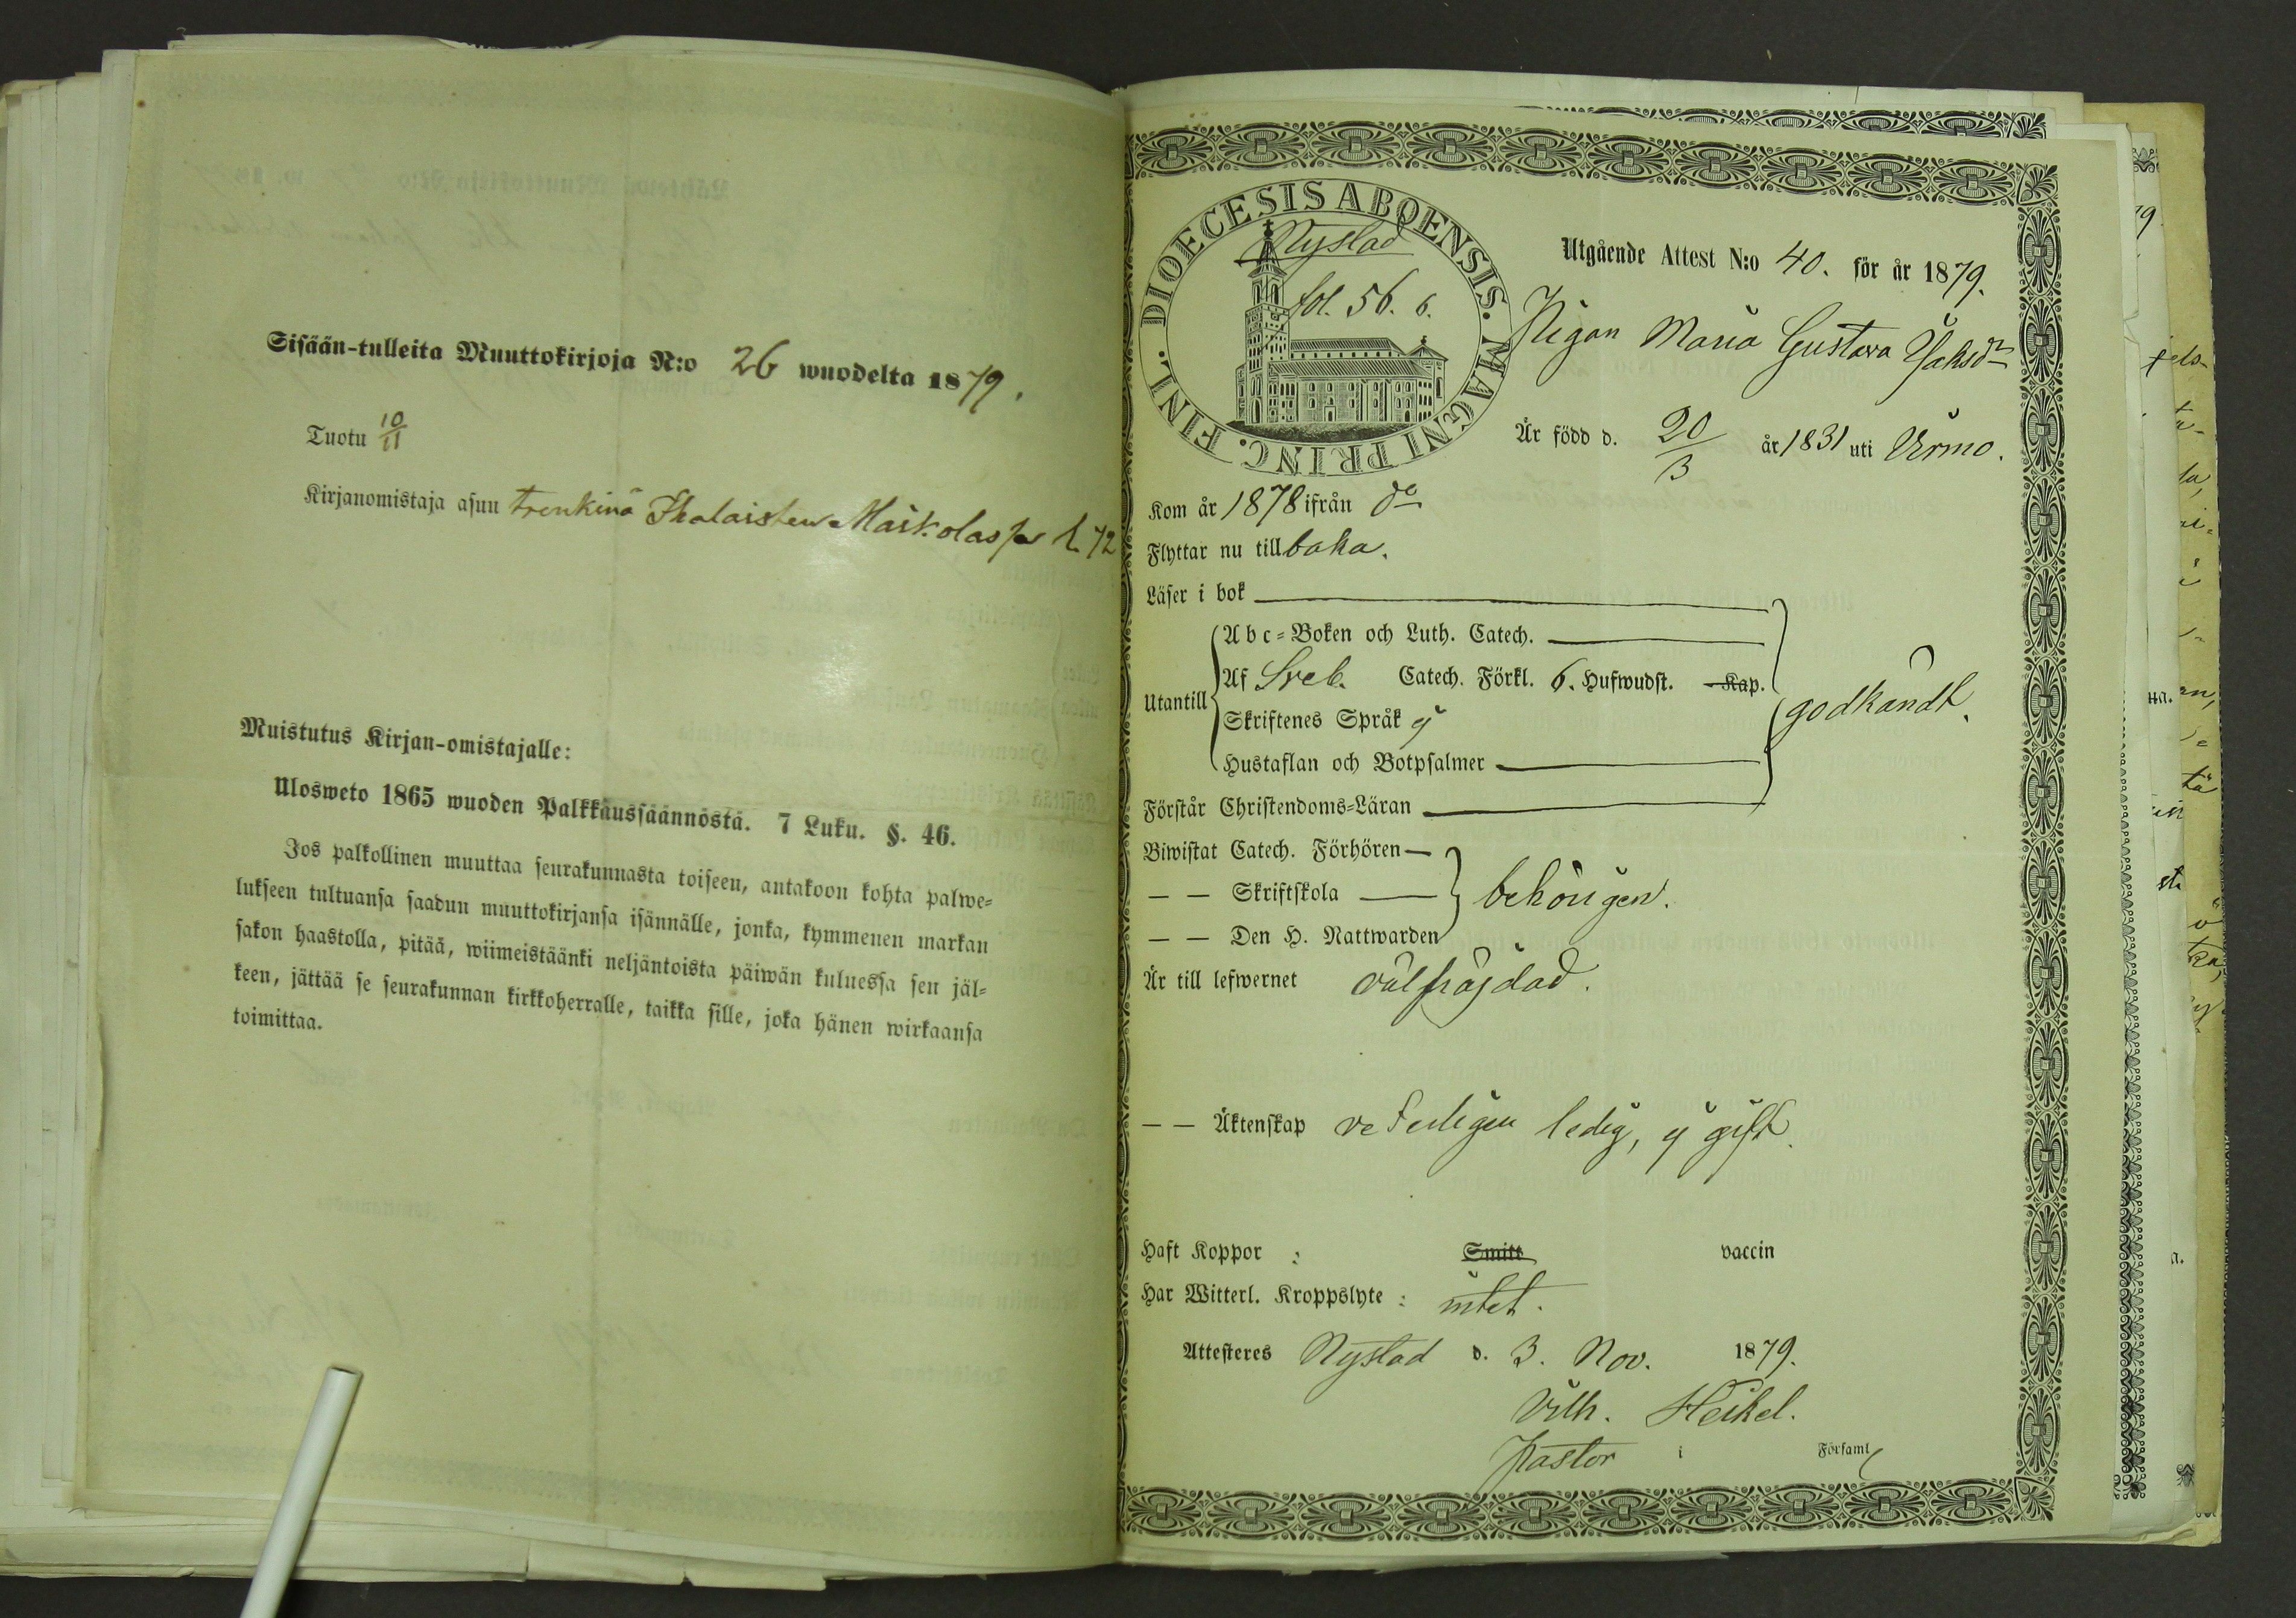 Sisään-tulleita Muuttokirjoja N:o 26 wuodelta 1879.
Tuotu 10/11
Kirjanomistaja asuu trenkinä Ihalaisten Maikolassa l. 72
Muistutus Kirjan-omistajalle:
Ulosweto 1865 wuoden Palkkaussäännöstä. 7 Luku. §. 46.
Jos palkollinen muuttaa seurakunnasta toiseen, antakoon kohta palwe=
lukseen tultuansa saadun muuttokirjansa isännälle, jonka, kymmenen markan
sakon haastolla, pitää, wiimeistäänki neljäntoista päiwän kuluessa sen jäl=
keen, jättää se seurakunnan kirkkoherralle, taikka sille, joka hänen wirkaansa
toimittaa.
DIOECESIS ABOENSIS. MAGNI PRINC. FINL.
Nystad
fol. 56. 6.
Utgående Attest N:o 40. för år 1879.
Pigan Maria Gustava Jakobsdr
Är född d. 20/3 år 1831 uti Virmo.
Kom år 1878 ifrån do
Flyttar nu till baka.
Läser i bok
Utantill
Abc=Boken och Luth. Catech.
Af Sveb. Catech. Förkl. 6. Hufwudst. Kap.
Skriftenes Språk ej
Hustaflan och Botpsalmer
godkändt.
Förstår Christendoms=Läran
Biwistat Catech. Förhören
— — Skriftskola
— — Den H. Nattwarden
behörigen.
Är till lefwernet välfräjdad.
— — Äktenskap veterligen ledig, ej gift.
Haft Koppor : Smitt vaccin
Har Witterl. Kroppslyte : intet.
Attesteres Nystad d. 3. Nov. 1879.
Vilh. Heikel.
Pastor i Församl